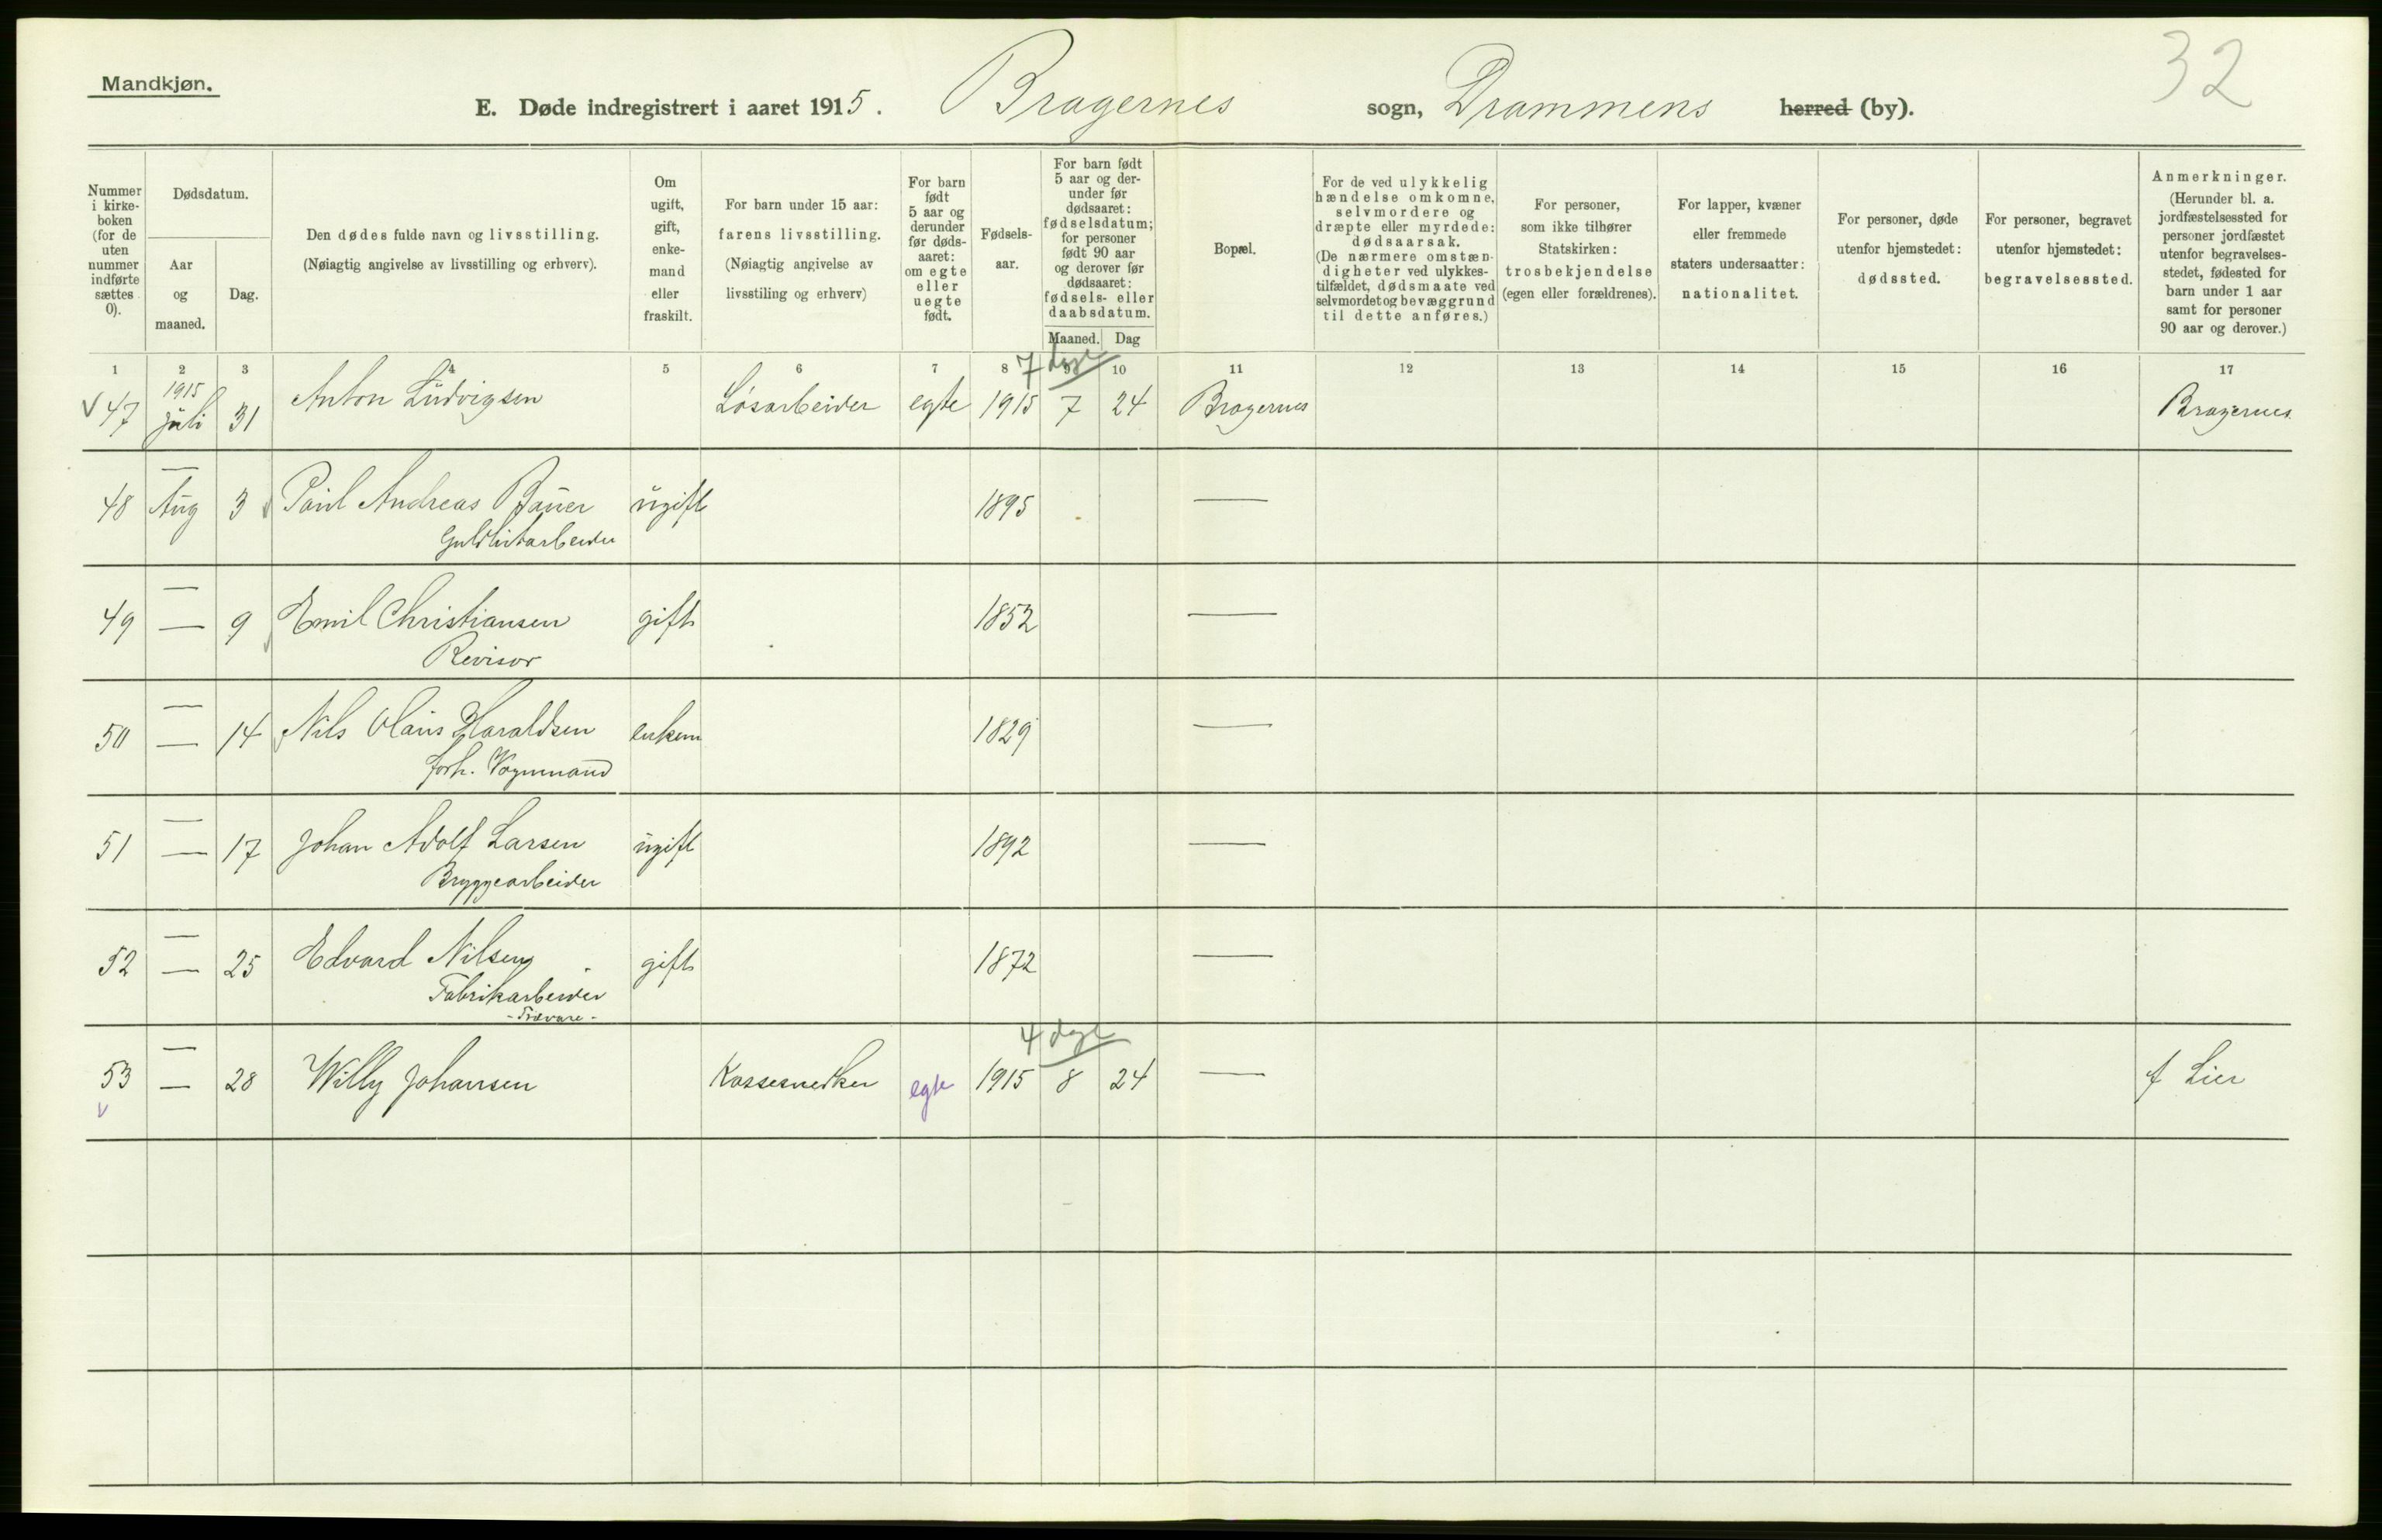 32
Mandkjøn.
E. Døde indregistrert i aaret 1915. Bragernes sogn, Drammens herred (by).
Nummer i kirke-boken (for de uten nummer indførte sættes 0).
Dødsdatum.
Aar og maaned.
Dag.
Den dødes fulde navn og livsstilling.
(Nøiagtig angivelse av livsstilling og erhverv).
Om ugift, gift, enke-mand eller fraskilt.
For barn under 15 aar: farens livsstilling. (Nøiagtig angivelse av livsstiling og erhverv)
For barn født 5 aar og derunder før døds-aaret: om egte eller uegte født.
Fødsels-aar.
For barn født 5 aar og der-under før dødsaaret: fødselsdatum; for personer født 90 aar og derover før dødsaaret: fødsels- eller daabsdatum.
Maaned. Dag
Bopæl.
For de ved ulykkelig hændelse omkomne, selvmordere og dræpte eller myrdede: dødsaarsak. (De nærmere omstæn-digheter ved ulykkes-tilfældet, dødsmaate ved selvmordet og bevæggrund til dette anføres.)
For personer, som ikke tilhører Statskirken: trosbekjendelse (egen eller forældrenes).
For lapper, kvæner eller fremmede staters undersaatter: nationalitet.
For personer, døde utenfor hjemstedet: dødssted.
For personer, begravet utenfor hjemstedet: begravelsessted.
Anmerkninger. (Herunder bl. a. jordfæstelsessted for personer jordfæstet utenfor begravelses-stedet, fødested for barn under 1 aar samt for personer 90 aar og derover.)
1 2 3 4 5 6 7 8 9 10 11 12 13 14 15 16 17
7 dage
1915
47 Juli 31 Anton Ludvigsen Løsarbeider egte 1915 7 24 Bragernes Bragernes
—
48 Aug 3 Paul Andreas Bauer ugift 1895 —
Guldlistarbeider
—
49 — 9 Emil Christiansen gift 1852 —
Revisor
—
50 — 14 Nils Olaus Haraldsen enkem 1829 —
forh. Vognmand
—
51 — 17 Johan Adolf Larsen ugift 1892 —
Bryggearbeider
—
52 — 25 Edvard Nilsen gift 1872 —
Fabrikarbeider
- Trævare -
4 dage
—
53 — 28 Willy Johansen Kassesnedker egte 1915 8 24 — f Lier